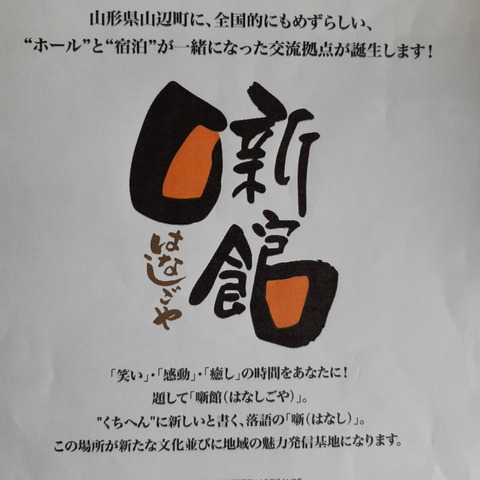 山形県山辺町に、全国的にもめずらしい、
“ホール”と“宿泊”が一緒になった交流拠点が誕生します!
噺館
はなしごや
「笑い」・「感動」・「癒し」の時間をあなたに!
題して「噺館(はなしごや)」。
"くちへん"に新しいと書く、落語の「噺(はなし)」。
この場所が新たな文化並びに地域の魅力発信基地になります。